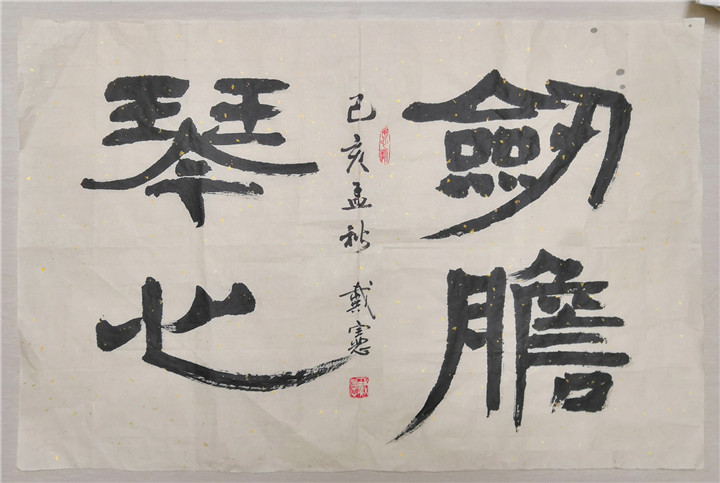 劒膽
己亥孟秋 戴憲
琴心